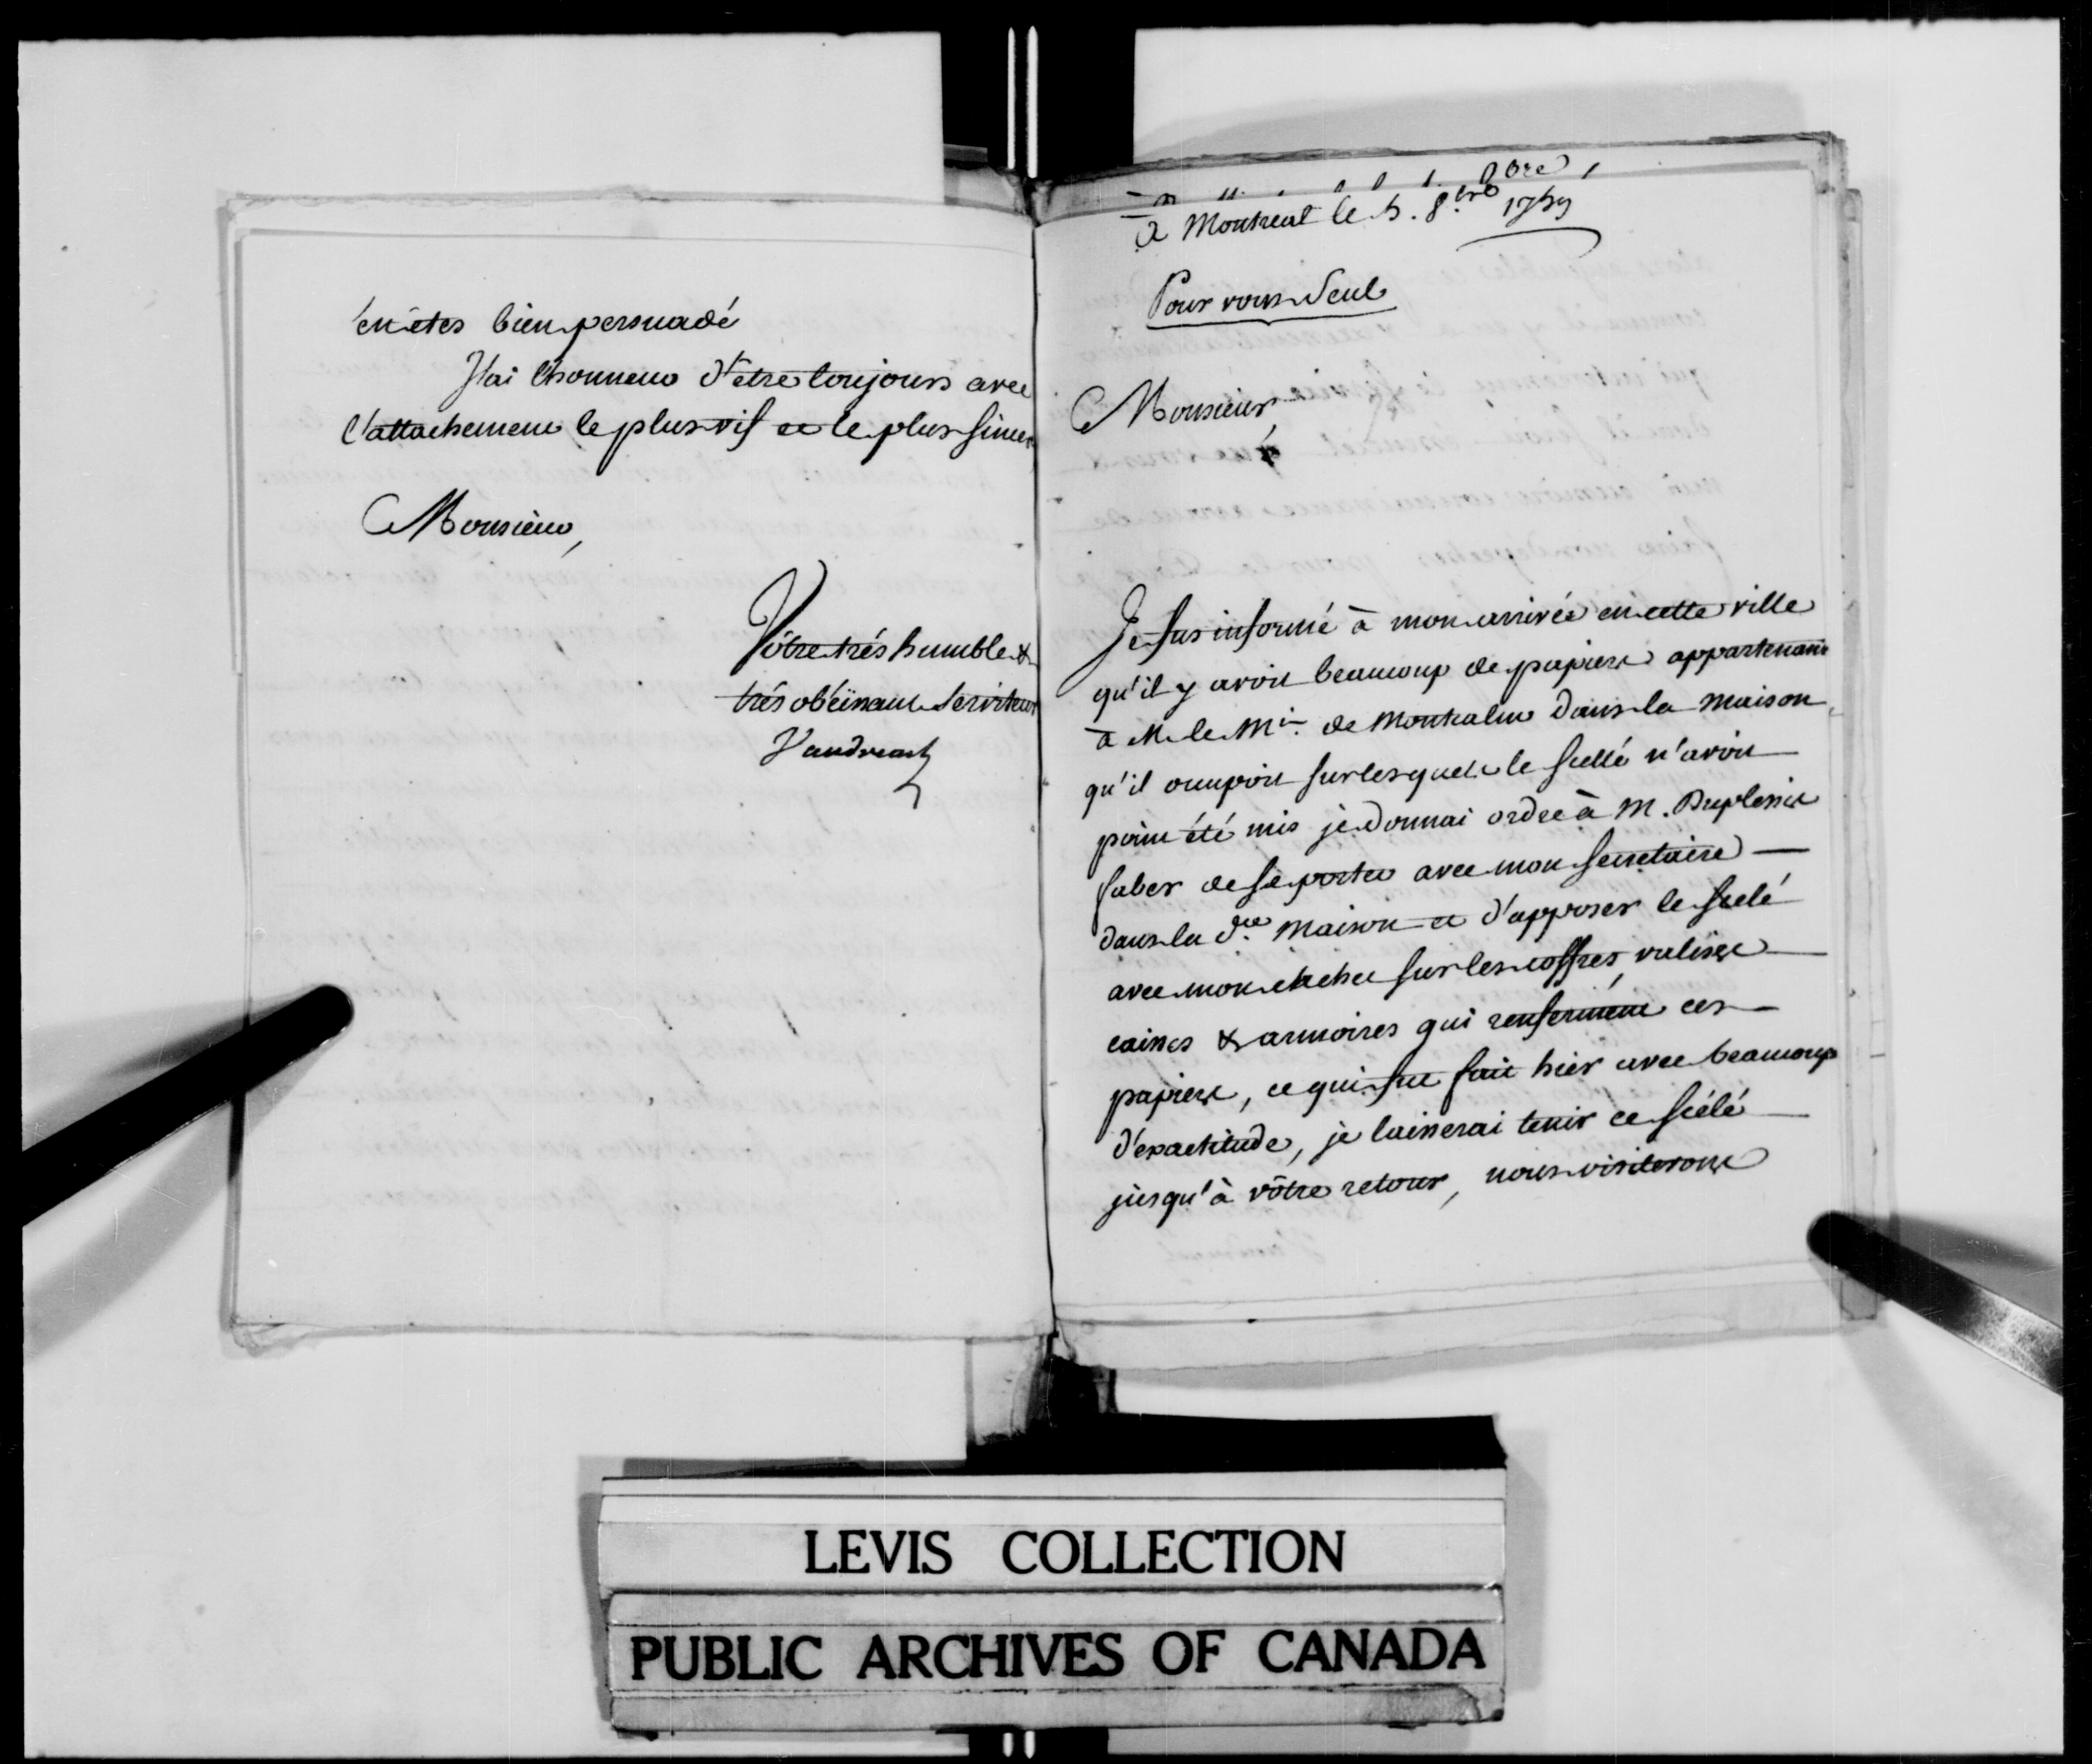 en êtes bien persuadé
J'ai l'honneur d'être toujours avec
l'attachement le plus vif et le plus sincer
Monsieur,
Vôtre trés humble &
trés obéissant Serviteur
Vaudreuil
à Montreal le 5. 8.bre 1759
Pour vous Seul
Monsieur,
Je fus informé à mon arrivée en cette ville
qu'il y avoit beaucoup de papiers appartenant
à M. le Mis. de Montcalm dans la maison
qu'il occupoit sur lesquels le scellé n'avoit
point été mis je donnai ordre à M. Duplessis
faber de se porter avec mon secretaire
dans la d.te Maison et d'apposer le scelé
avec mon cachet sur les coffres, valises
caisses & armoires qui renferment ces
papiers, ce qui fut fait hier avec beaucoup
d'exactitude, je laisserai tenir ce scélé
jusqu'à vôtre retour, nous visiterons
LEVIS COLLECTION
PUBLIC ARCHIVES OF CANADA